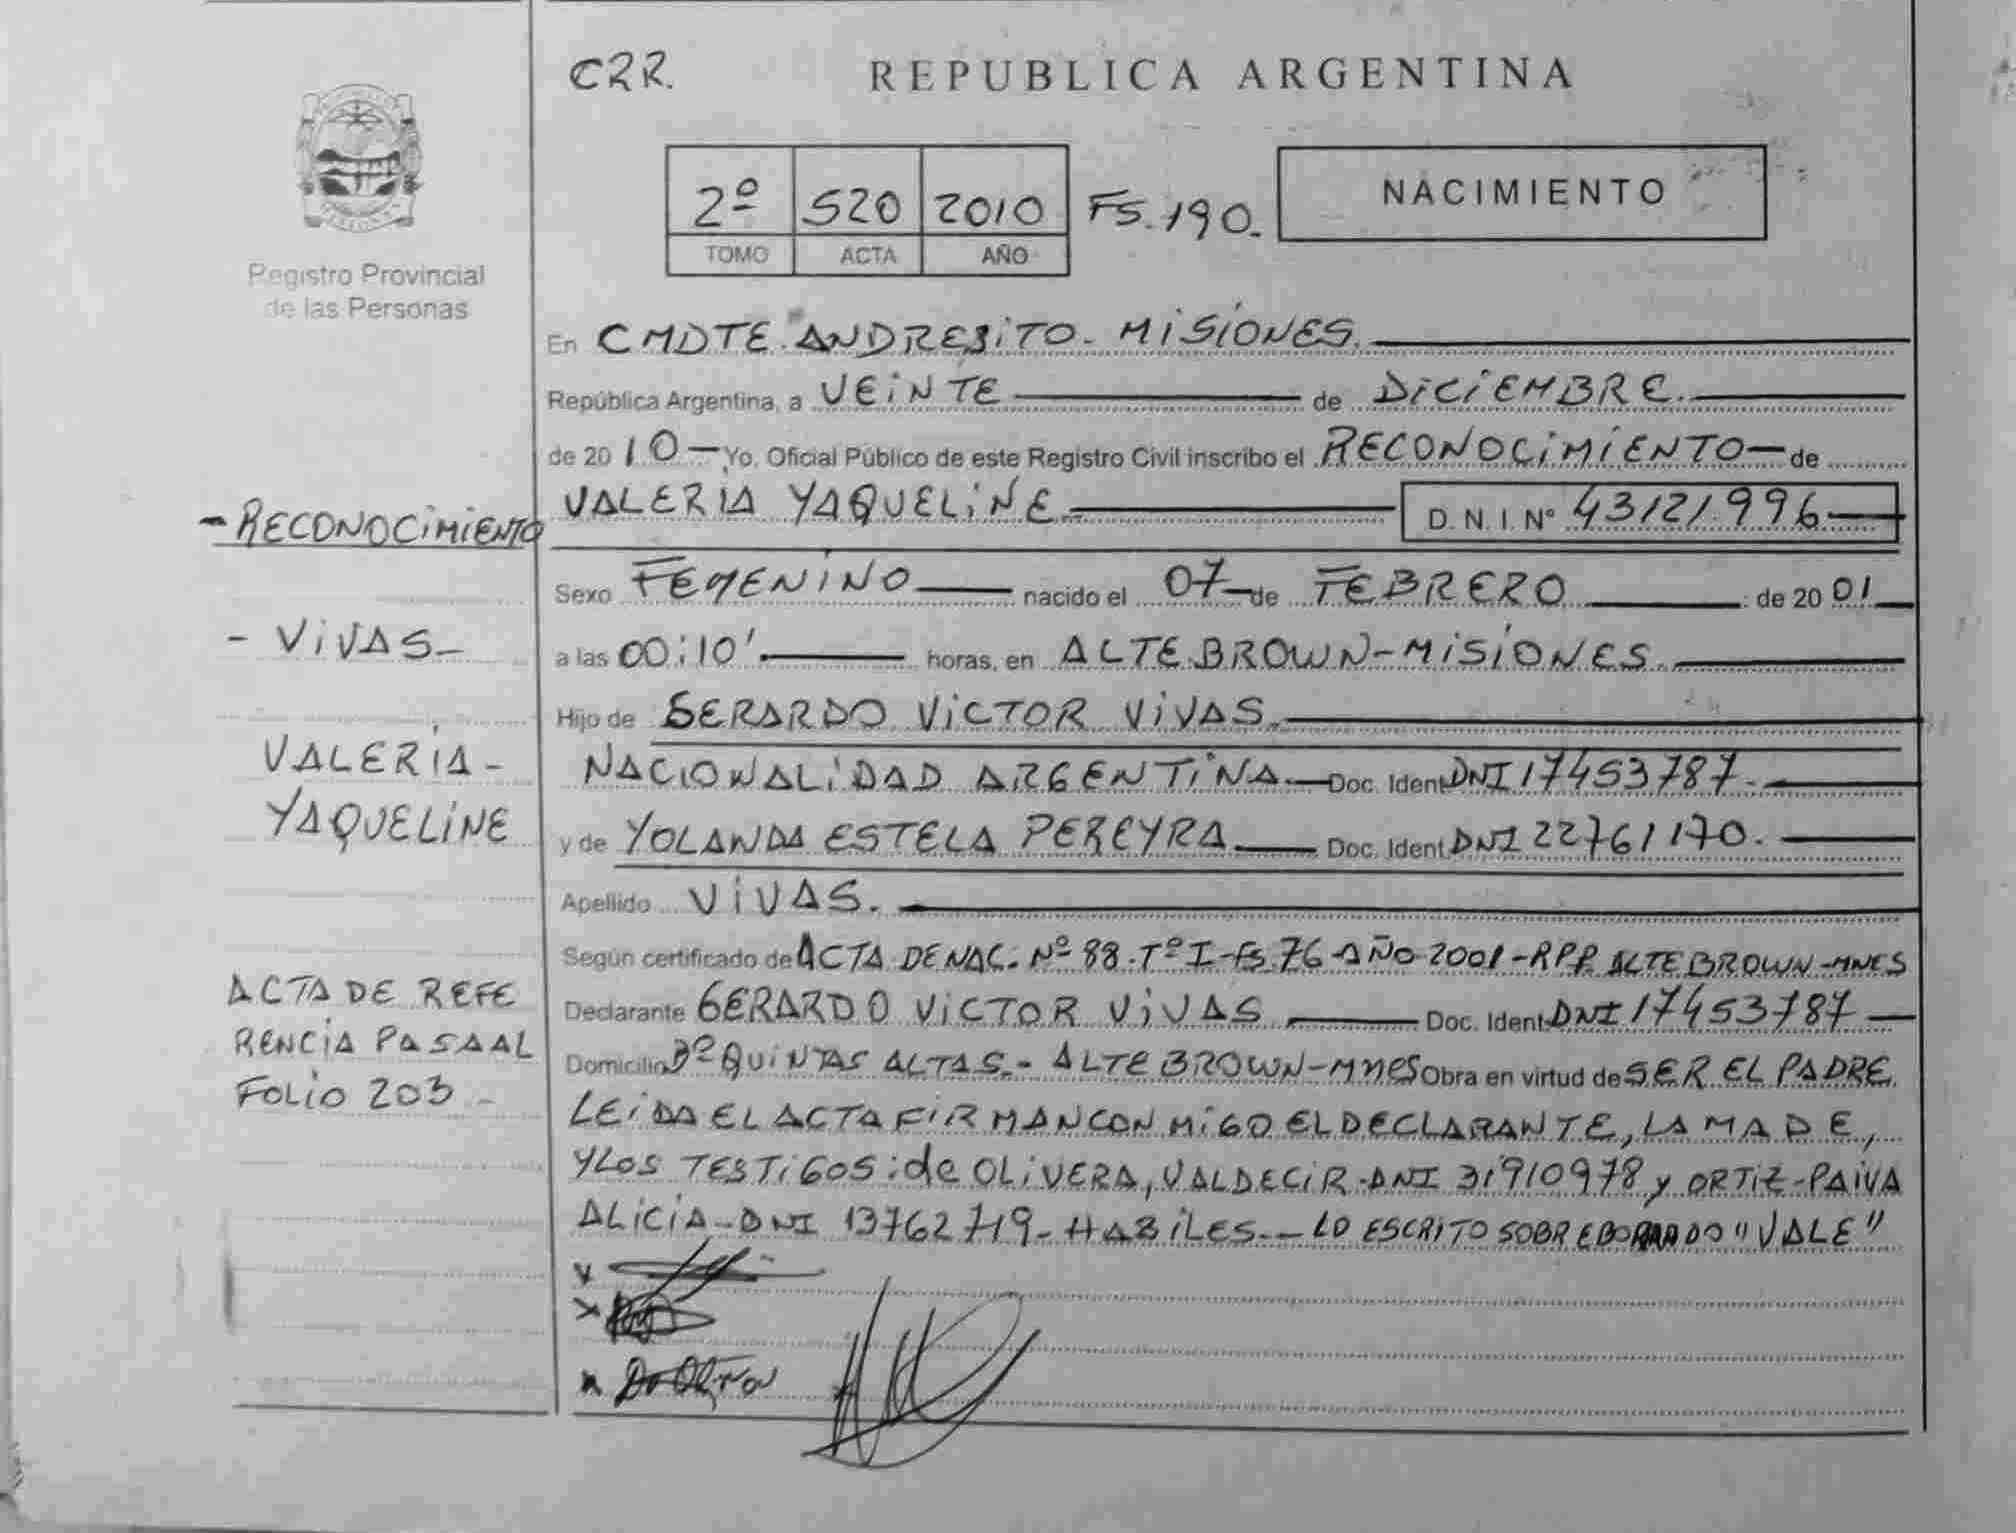 CRR.
REPUBLICA ARGENTINA
2º 520 2010 FS.190.
TOMO ACTA AÑO
NACIMIENTO
Registro Provincial
de las Personas
En CMDTE ANDRESITO - MISIONES.
República Argentina, a VEINTE de DICIEMBRE.
de 2010 - Yo, Oficial Público de este Registro Civil inscribo el RECONOCIMIENTO - de
VALERIA YAQUELINE. D.N.I Nº 43121.996
Sexo FEMENINO nacido el 07 de FEBRERO de 2001
a las 00:10' horas, en ALTE.BROWN - MISIONES.
Hijo de GERARDO VICTOR VIVAS.
NACIONALIDAD ARGENTINA. Doc. Ident DNI 17453787.
y de YOLANDA ESTELA PEREYRA Doc. Ident. DNI 22761170.
Apellido VIVAS.
Según certificado de ACTA DE NAC. Nº 88. Tº I - FS.76 - AÑO 2001 - RPP. ALTE BROWN - MNES
Declarante GERARDO VICTOR VIVAS Doc. Ident. DNI 17453787
Domicilio Bº QUINTAS ALTAS. - ALTE BROWN - MNES Obra en virtud de SER EL PADRE.
LEIDA EL ACTA FIRMAN CONMIGO EL DECLARANTE, LA MADE,
Y LOS TESTIGOS: de OLIVERA, VALDECIR - DNI 31910978 y ORTIZ - PAIVA
ALICIA - DNI 13762719 - HABILES. - LO ESCRITO SOBREBORRADO "VALE"
- RECONOCIMIENTO
- VIVAS -
VALERIA -
YAQUELINE
ACTA DE REFE
RENCIA PASA AL
FOLIO 203 -